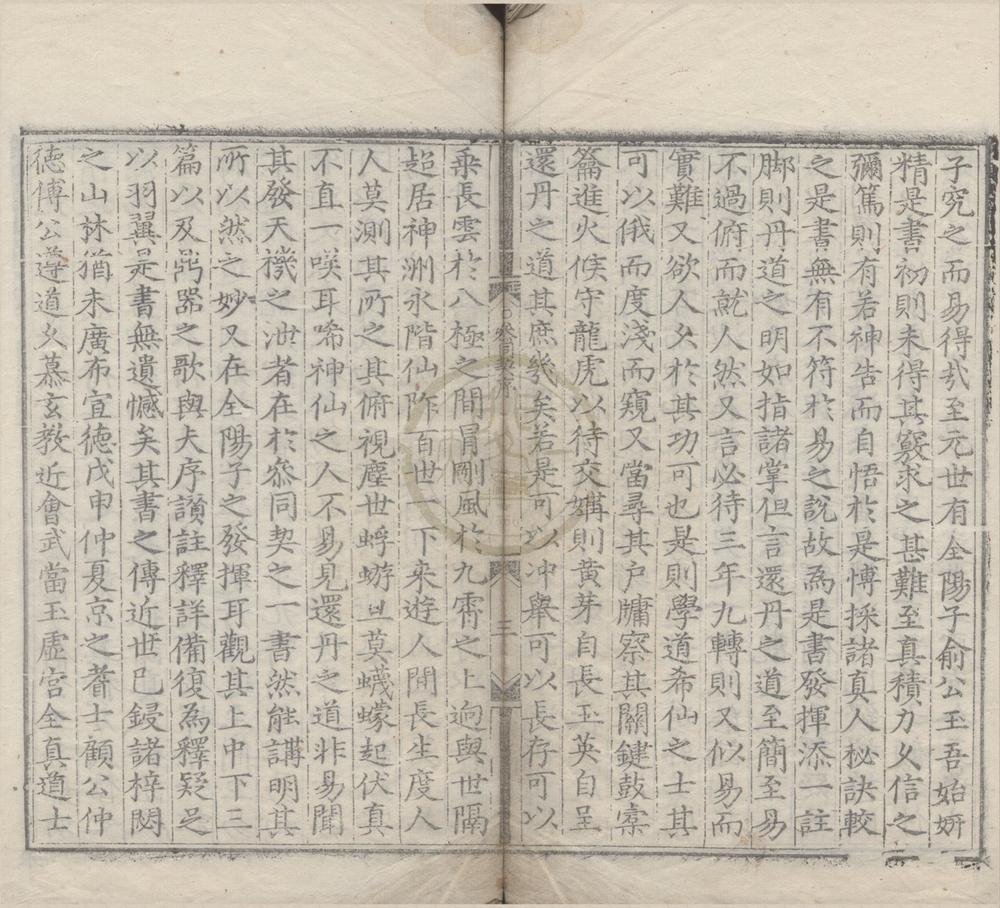 子究之而易得哉至元世有全陽子俞公玉吾始姸
精是書初則未得其竅求之甚難至真積力久信之
彌篤則有若神告而自悟於是博採諸真人秘訣較
之是書無有不符於易之說故為是書發揮添一註
脚則丹道之明如指諸掌但言還丹之道至簡至易
不過俯而就人然又言必待三年九轉則又似易而
實難又欲人久於其功可也是則學道希仙之士其
可以俄而度淺而窺又當尋其戶牖察其關鍵鼓橐
籥進火候守龍虎以待交媾則黄芽自長玉英自呈
還丹之道其庶幾矣若是可以冲舉可以長存可以
乘長雲於八極之間冐剛風於九霄之上逈與世隔
超居神洲永階仙阼百世一下來遊人間長生度人
人莫測其所之其俯視塵世蜉蝣旦莫蠛蠓起伏真
不直一唉耳唏神仙之人不易見還丹之道非易聞
其發天機之泄者在於叅同契之一書然能講明其
所以然之妙又在全陽子之發揮耳觀其上中下三
篇以及鼎器之歌與夫序讃註釋詳備復為釋疑足
以羽翼是書無遺憾矣其書之傳近世已鋟諸梓閟
之山林猶未廣布宣德戊申仲夏京之耆士顧公仲
徳傅公遵道久慕玄教近會武當玉虛宫全真道士